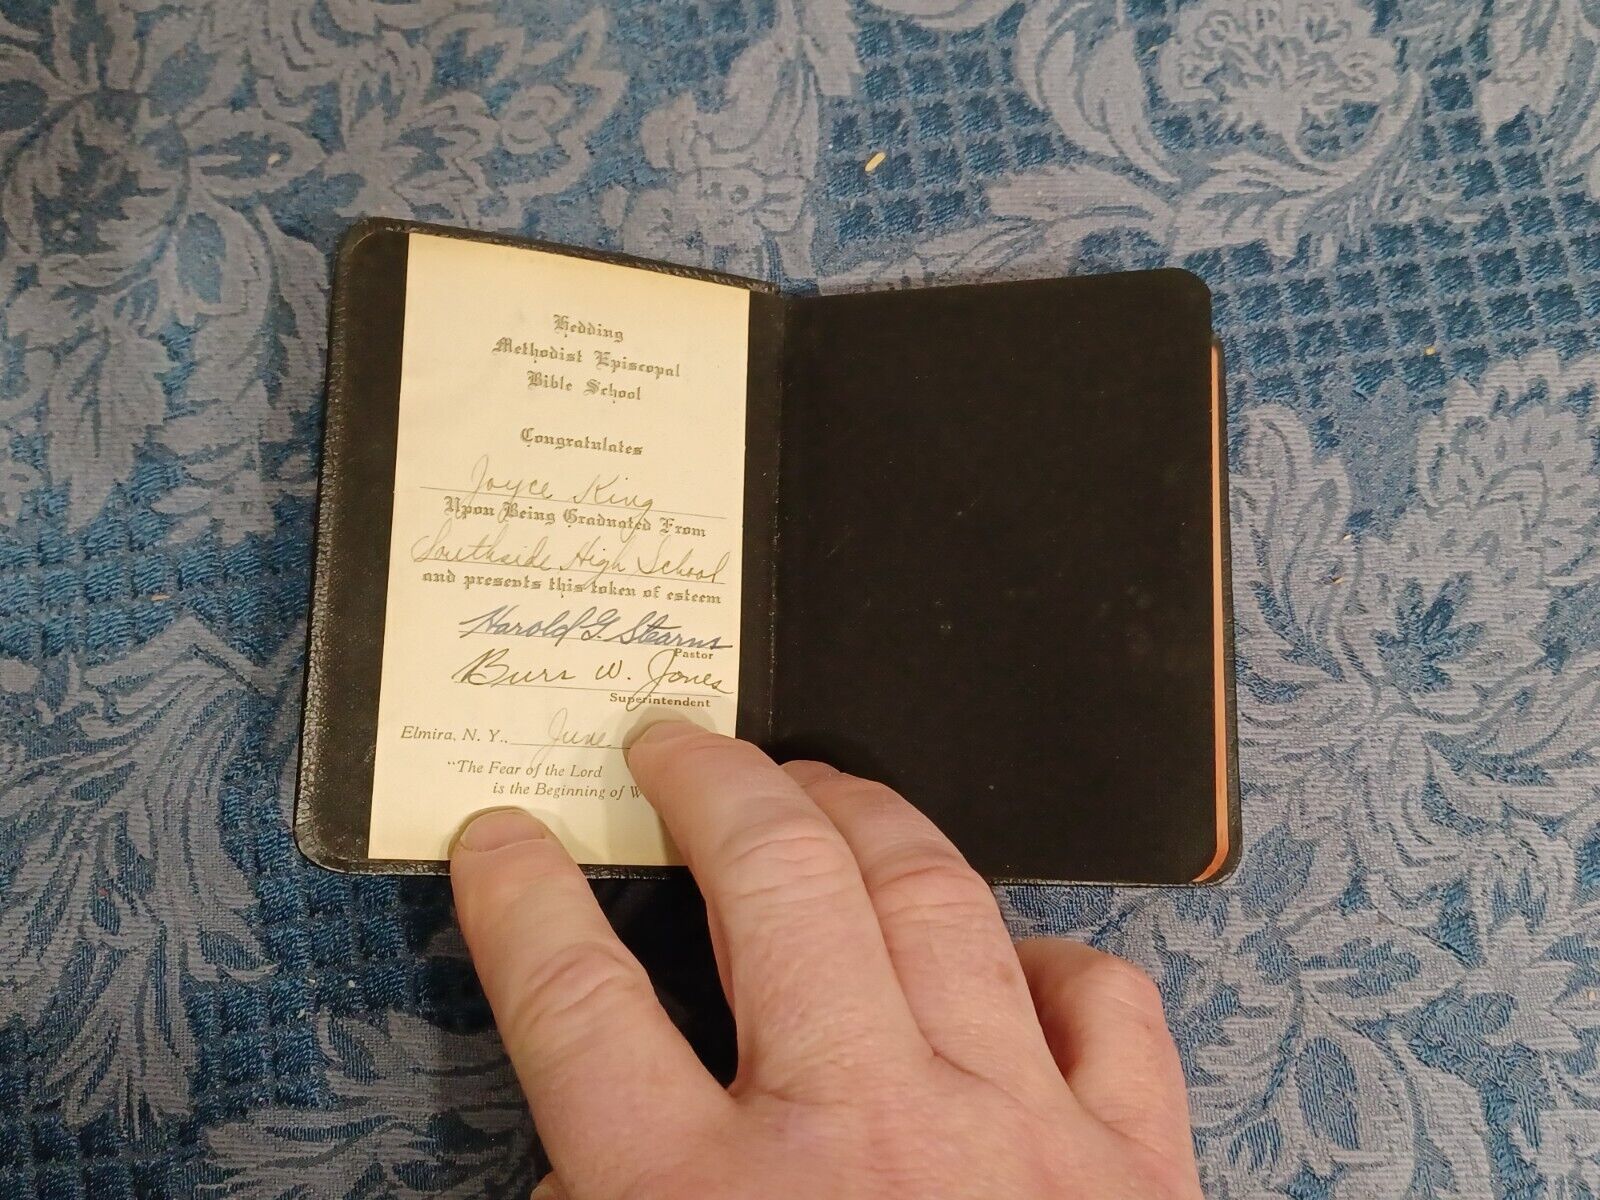 Hedding
Methodist Episcopal
Bible School
Congratulates
Joyce King
Upon Being Graduated From
Southside High School
and presents this token of esteem
Harold G. Stearns
Pastor
Burr W. Jones
Superintendent
Elmira, N. Y., June
"The Fear of the Lord
is the Beginning of W